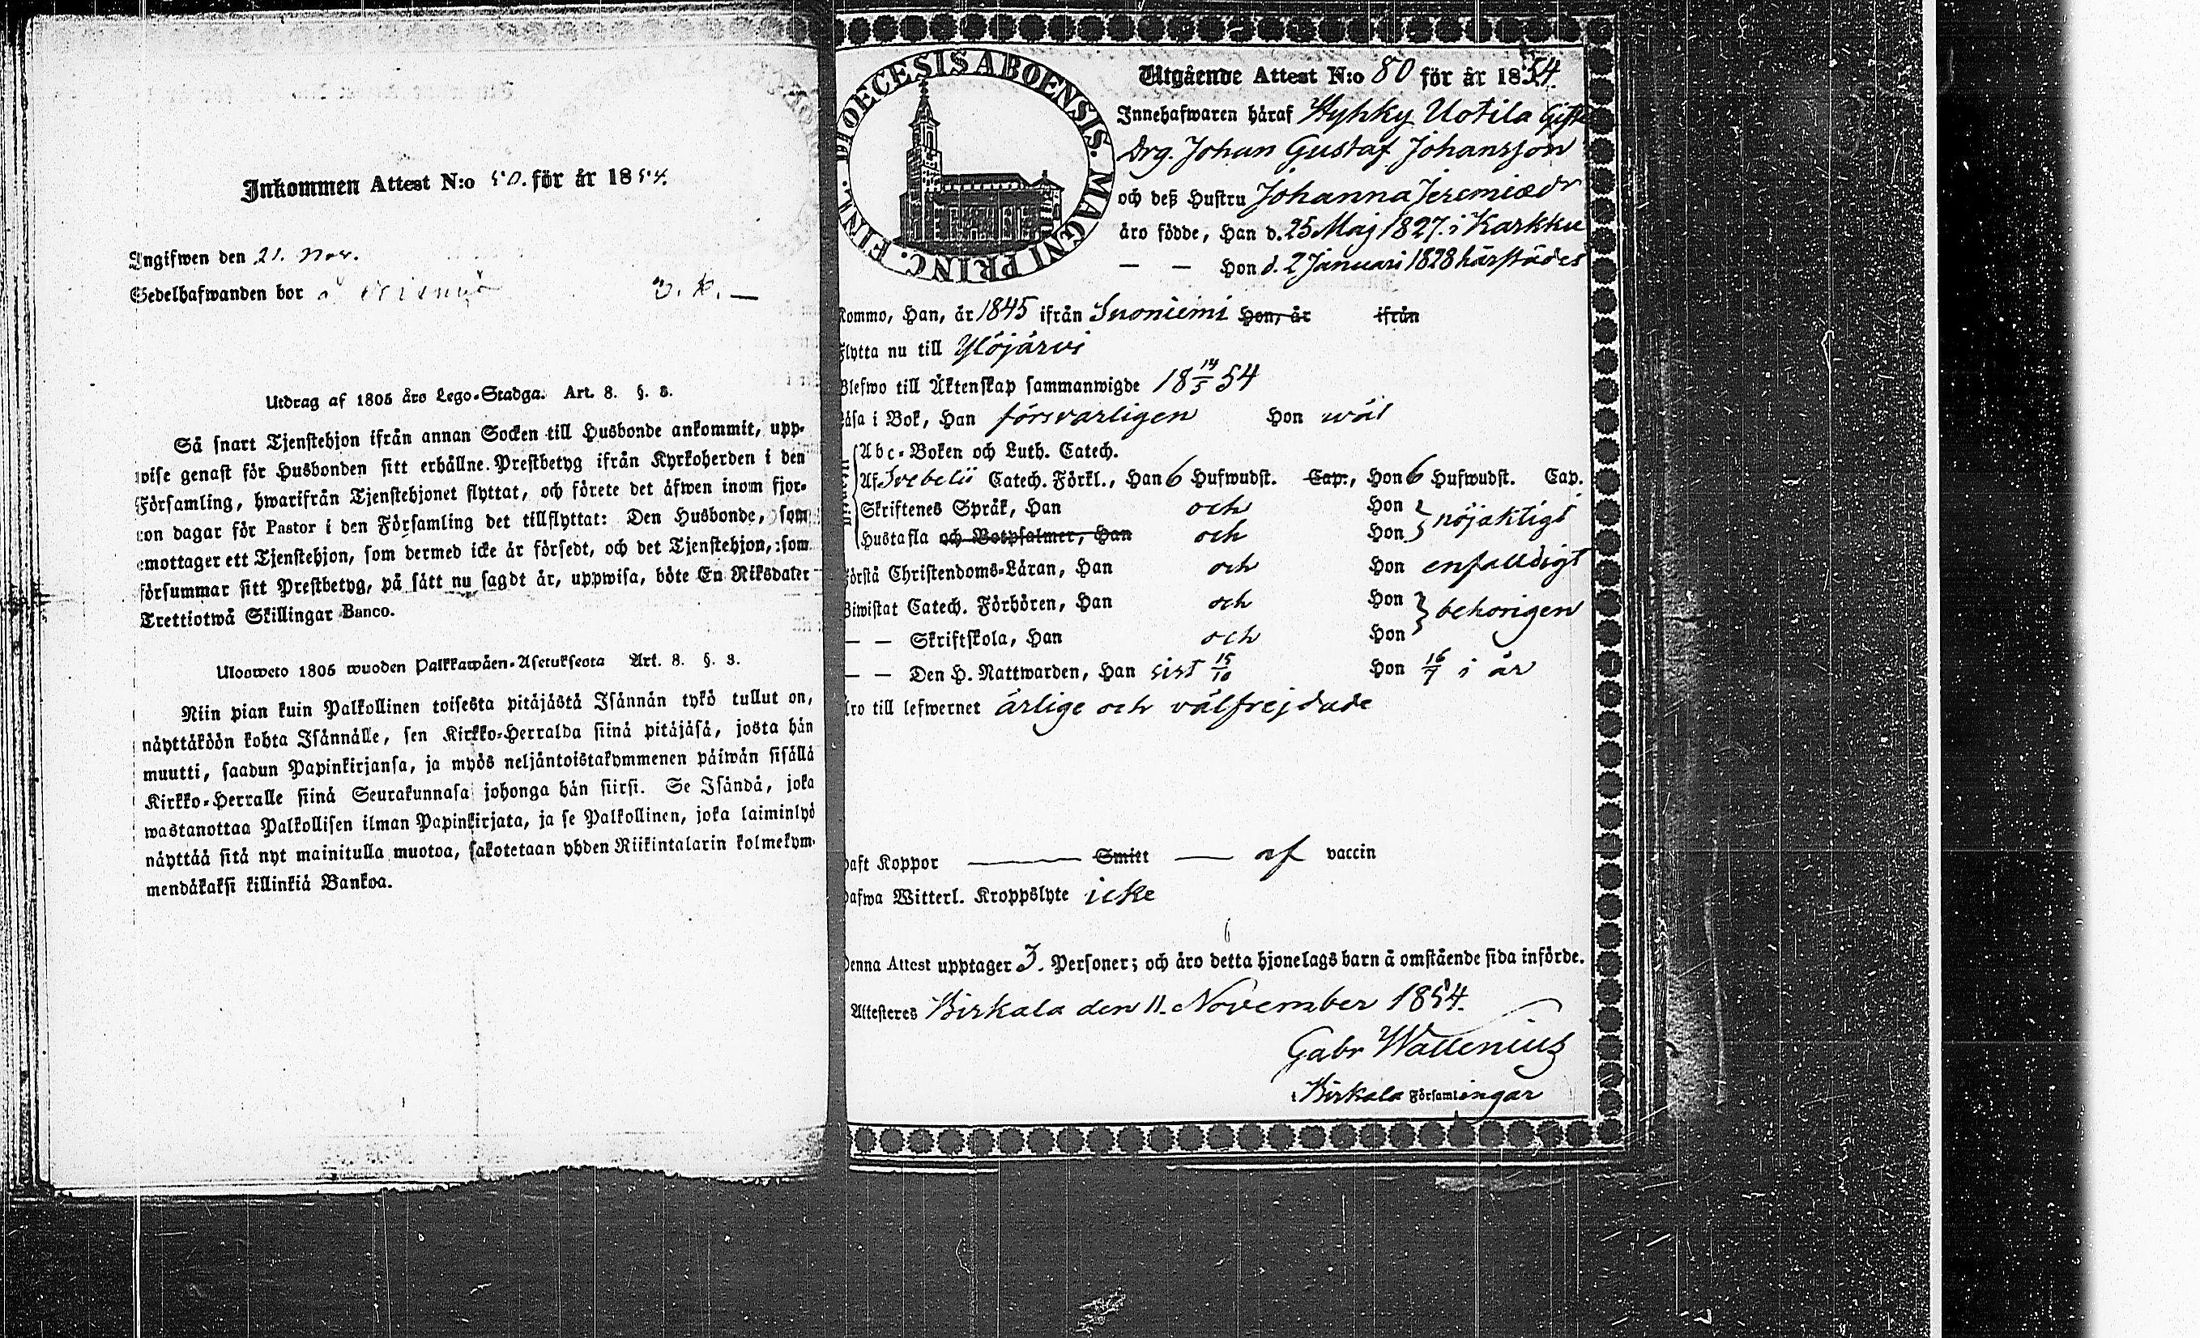 Inkommen Attest N:o 50. för år 1854.
Ingifwen den 21. Nov.
Sedelhafwanden bor å
Utdrag af 1805 års Lego-Stadga. Art. 8. §. 3.
Så snart Tjenstehjon ifrån annan Socken till Husbonde ankommit, upp-
wise genast för Husbonden sitt erhållne Prestbetyg ifrån Kyrkoherden i den
Församling, hwarifrån Tjenstehjonet flyttat, och förete det äfwen inom fjor-
ton dagar för Pastor i den Församling det tillflyttat: Den Husbonde, som
emottager ett Tjenstehjon, som dermed icke är försedt, och det Tjenstehjon, som
försummar sitt Prestbetyg, på sätt nu sagdt är, uppwisa, böte En Riksdaler
Trettiotwå Skillingar Banco.
Ulosweto 1805 wuoden Palkkawäen-Asetuksesta Art. 8. §. 3.
Niin pian kuin Palkollinen toisesta pitäjästä Isännän tykö tullut on,
näyttäköön kohta Isännälle, sen Kirkko-Herralda siinä pitäjäsä, josta hän
muutti, saadun Papinkirjansa, ja myös neljäntoistakymmenen päiwän sisällä
Kirkko-Herralle siinä Seurakunnasa johonga hän siirsi. Se Isändä, joka
wastanottaa Palkollisen ilman Papinkirjata, ja se Palkollinen, joka laiminlyö
näyttää sitä nyt mainitulla muotoa, sakotetaan yhden Riikintalarin kolmekym-
mendäkaksi killinkiä Bankoa.
DIOECESIS ABOENSIS. MAGNI PRINC. FINL.
Utgående Attest N:o 80 för år 1854.
Innehafwaren häraf Hyhky Uotila Gifte
Drg. Johan Gustaf Johansson
och deß Hustru Johanna Jeremiædr
äro födde, Han d. 25 Maj 1827. i Karkku
— — Hon d. 2 Januari 1828 härstädes
Kommo, Han, år 1845 ifrån Suoniemi Hon, år ifrån
Flytta nu till Ylöjärvi
Blefwo till Äktenskap sammanwigde 18 14/5 54
Läsa i Bok, Han försvarligen Hon wäl
Abc-Boken och Luth. Catech.
Af Svebelii Catech. Förkl., Han 6 Hufwudst. Cap., Hon 6 Hufwudst. Cap.
Skriftenes Språk, Han och Hon nöjaktigt
Hustafla och Botpsalmer, Han och Hon
Förstå Christendoms-Läran, Han och Hon enfalldigt
Biwistat Catech. Förhören, Han och Hon behörigen
— — Skriftskola, Han och Hon
— — Den H. Nattwarden, Han sist 15/10 Hon 16/7 i år
Äro till lefwernet ärlige och välfrejdade
Haft Koppor Smitt af vaccin
Hafwa Witterl. Kroppslyte icke
Denna Attest upptager 3. Personer; och äro detta hjonelags barn å omstående sida införde.
Attesteres Birkala den 11. November 1854.
Gabr Wallenius
Birkala Församlingar